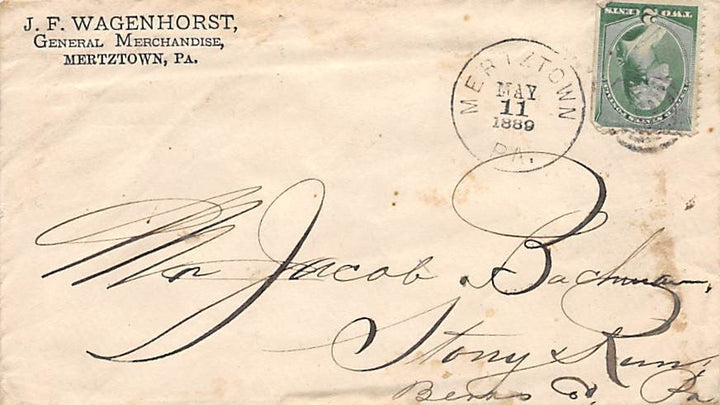 J. F. WAGENHORST,
GENERAL MERCHANDISE,
MERTZTOWN, PA.
MERTZTOWN
MAY
11
1889
PA.
TWO CENTS
2
Mr Jacob Bachman,
Stony Run,
Berks Co. Pa